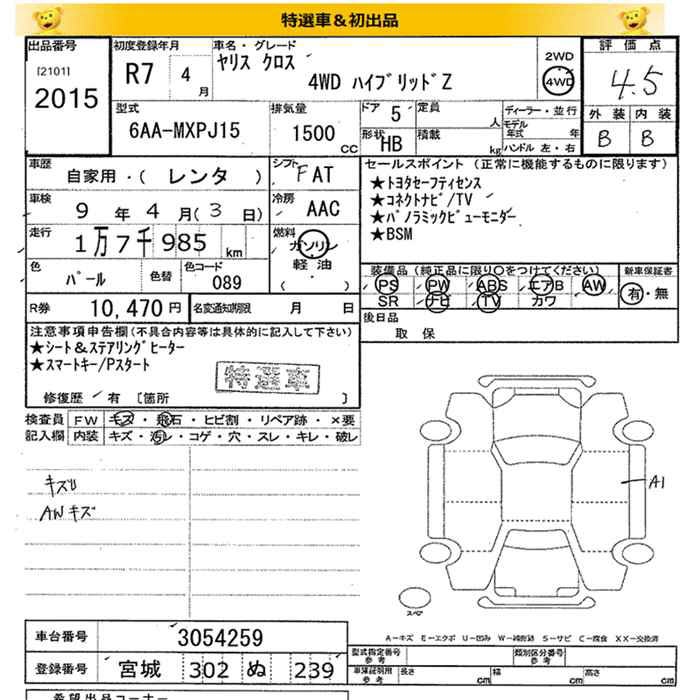 特選車＆初出品
出品番号 初度登録年月 車名・グレード 評価点
[2101] 2015 R7 4月 ヤリス クロス 4WD ハイブリッドZ 2WD 4WD 4.5
型式 排気量 ドア 定員 人 ディーラー・並行 外装 内装
6AA-MXPJ15 1500cc 5 モデル年式 年 B B
形状 HB 積載 kg ハンドル 左・右
車歴 自家用・( レンタ ) シフト FAT セールスポイント (正常に機能するものに限ります)
★トヨタセーフティセンス
車検 9年4月(3日) 冷房 AAC ★コネクトナビ/TV
★パノラミックビューモニター
走行 1万7千985km 燃料 ガソリン 軽油 ( ) ★BSM
色 パール 色替 色コード 089 装備品(純正品に限り○をつけてください) 新車保証書
PS PW ABS エアB AW 有・無
SR ナビ TV カワ
R券 10,470円 名変通知期限 月 日 後日品
取 保
注意事項申告欄(不具合内容等は具体的に記入して下さい)
★シート&ステアリングヒーター
★スマートキー/Pスタート
特選車
修復歴 有 [箇所 ]
検査員記入欄 FW キズ・飛石・ヒビ割・リペア跡・×要
内装 キズ・汚レ・コゲ・穴・スレ・キレ・破レ
キズU
AWキズ
A1
スペア
A-キズ E-エクボ U-凹み W-補修跡 S-サビ C-腐食 XX-交換済
車台番号 3054259
登録番号 宮城 302 ぬ 239
型式指定番号 参考 類別区分番号 参考
車庫証明用 参考 長さ cm 幅 cm 高さ cm
希望出品コーナー